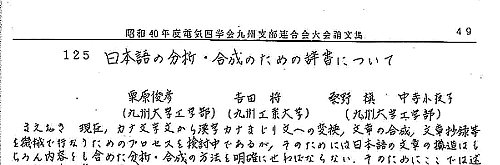 昭和40年度電気四学会九州支部連合会大会論文集 49
125 日本語の分析・合成のための辞書について
栗原俊彦 吉田 将
(九州大学工学部) (九州工業大学) (九州大学工学部)
まえがき 現在,カナ文字文から漢字カナまじり文への変換,文章の合成,文章抄録等
を機械で行なうためのプロセスを検討中であるが,そのためには日本語の文章の構造はも
ちろん内容をも含めた分析・合成の方法を明確にせねばならない。そのためにここでは